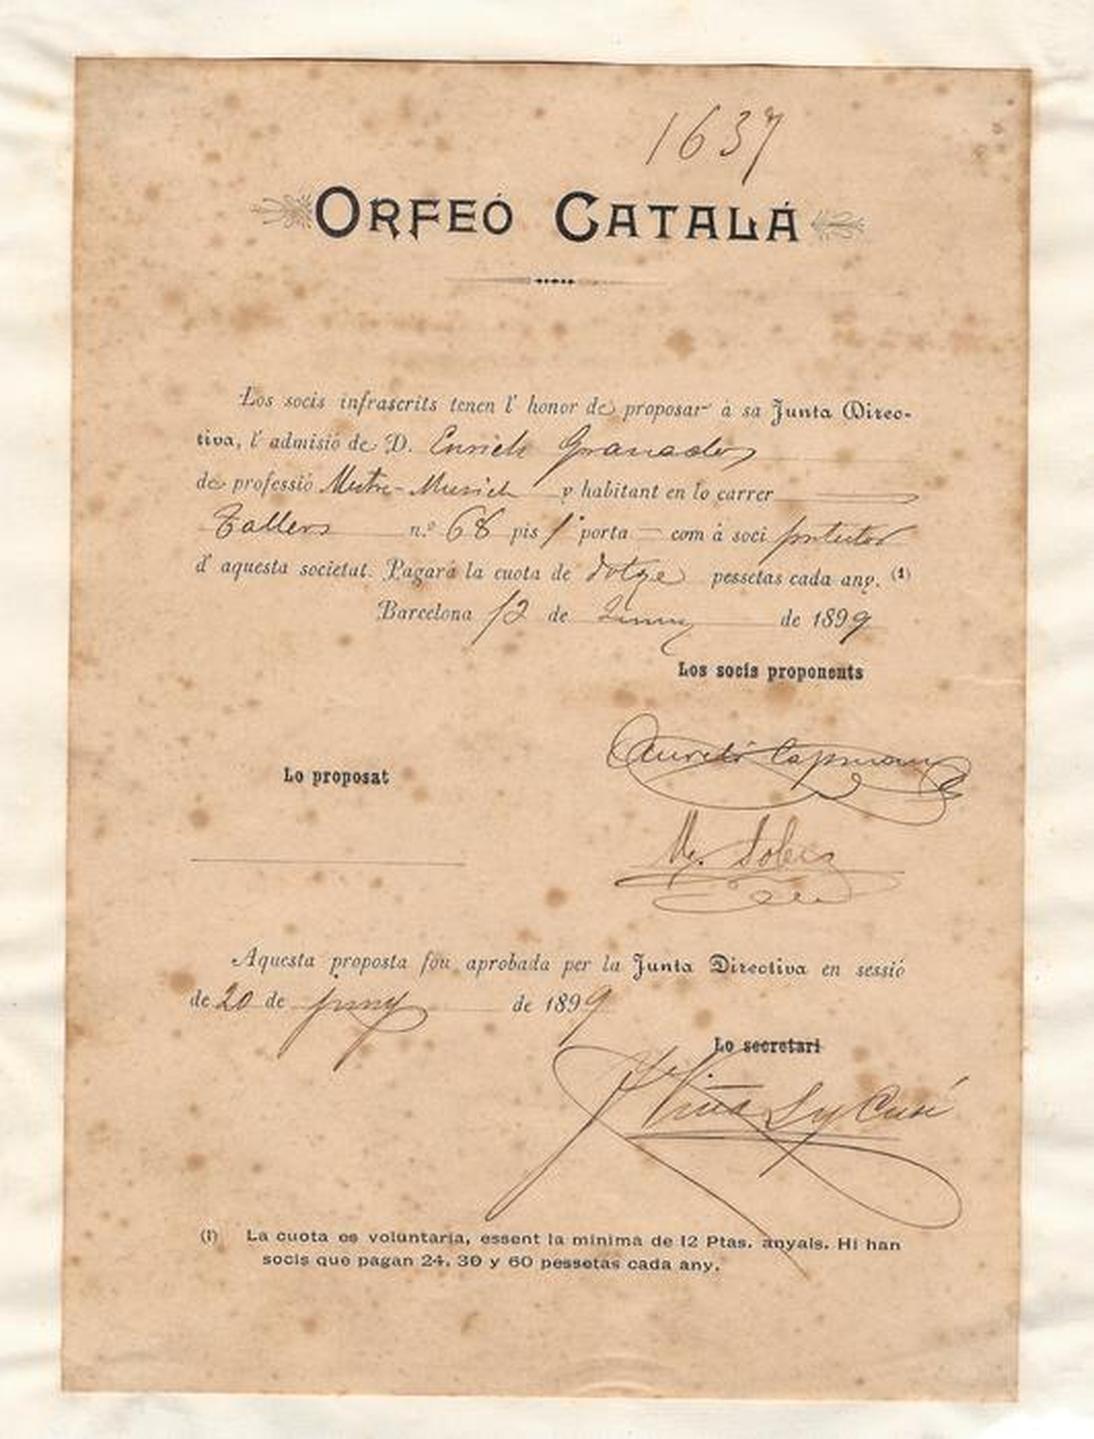 1637
ORFEÓ CATALÁ
Los socis infrascrits tenen l' honor de proposar á sa Junta Direc-
tiva, l' admisió de D. Enrich Granados
de professió Mestre-Musich y habitant en lo carrer
Tallers n.º 68 pis 1º porta — com á soci protector
d' aquesta societat. Pagará la cuota de dotze pessetas cada any. (1)
Barcelona 12 de Juny de 1899
Los socis proponents
Aureli Capmany
Lo proposat
M.
Aquesta proposta fou aprobada per la Junta Directiva en sessió
de 20 de juny de 1899
Lo secretari
Viña y Cusí
(1) La cuota es voluntaria, essent la mínima de 12 Ptas. anyals. Hi han
socis que pagan 24, 30 y 60 pessetas cada any.